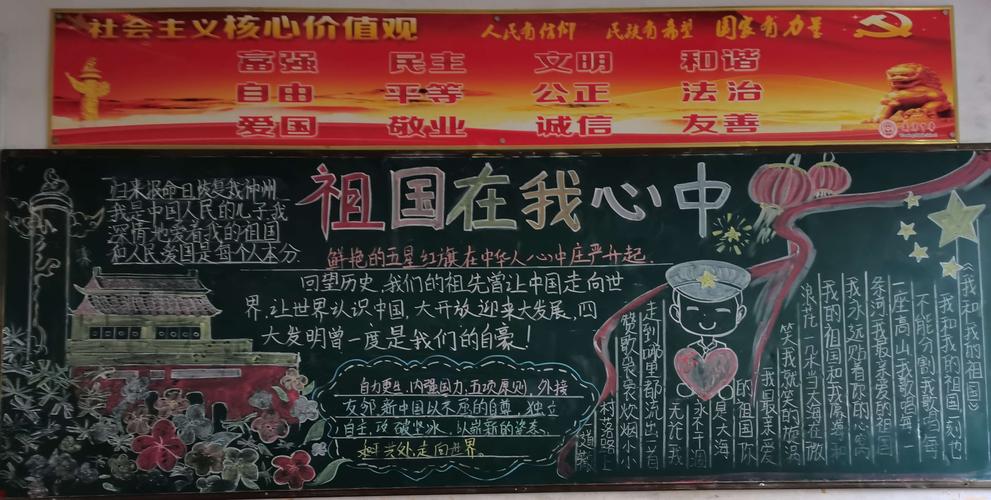 社会主义核心价值观
人民有信仰 民族有希望 国家有力量
富强 民主 文明 和谐
自由 平等 公正 法治
爱国 敬业 诚信 友善
祖国在我心中
归来报命日恢复我神州
我是中国人民的儿子我
深情地爱着我的祖国
和人民爱国是每个人本分
鲜艳的五星红旗在中华人心中庄严升起
回望历史,我们的祖先曾让中国走向世
界,让世界认识中国,大开放迎来大发展,四
大发明曾一度是我们的自豪!
自力更生,内强国力,五项原则,外接
友邻新中国以不屈的自尊、独立
自主,攻破坚冰,以崭新的姿态、
屹立处,走向世界。
《我和我的祖国》
我和我的祖国一刻也
不能分割我歌唱每
一座高山我歌唱每一
条河我最亲爱的祖国
我永远贴着你的心窝
我的祖国和我像海和
浪花一朵当大海在微
笑我就是笑的旋涡
我最亲爱
的祖国你
是大海
永不干涸
无论我
走到哪里都流出一首
赞歌袅袅炊烟小小
村落路上